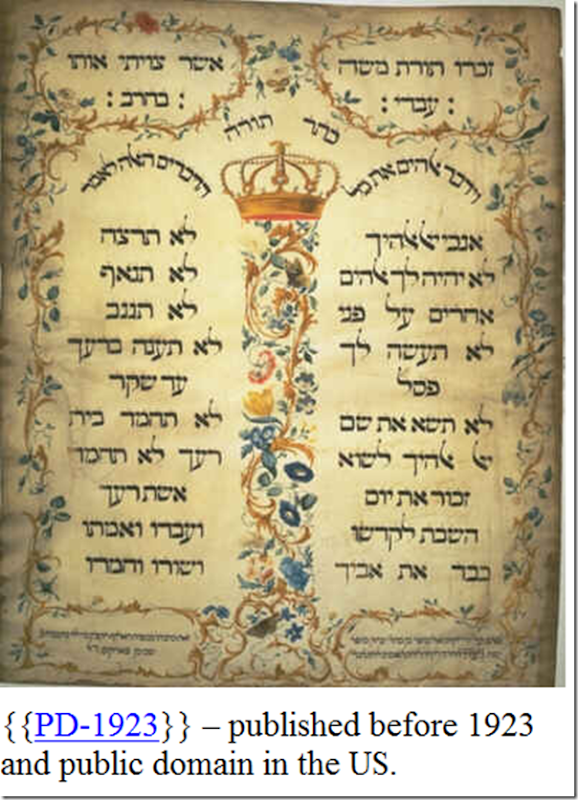 זכרו תורת משה
: עבדי :
אשר צויתי אותו
: בחרב :
כתר תורה
וידבר ﭏהים את כל
הדברים האלה לאמר
אנכי יי ﭏהיך
לא יהיה לך ﭏהים
אחרים על פני
לא תעשה לך
פסל
לא תשא את שם
יי ﭏהיך לשוא
זכור את יום
השבת לקדשו
כבד את אביך
לא תרצח
לא תנאף
לא תגנב
לא תענה ברעך
עד שקר
לא תחמד בית
רעך לא תחמד
אשת רעך
ועבדו ואמתו
ושורו וחמרו
{{PD-1923}} – published before 1923
and public domain in the US.